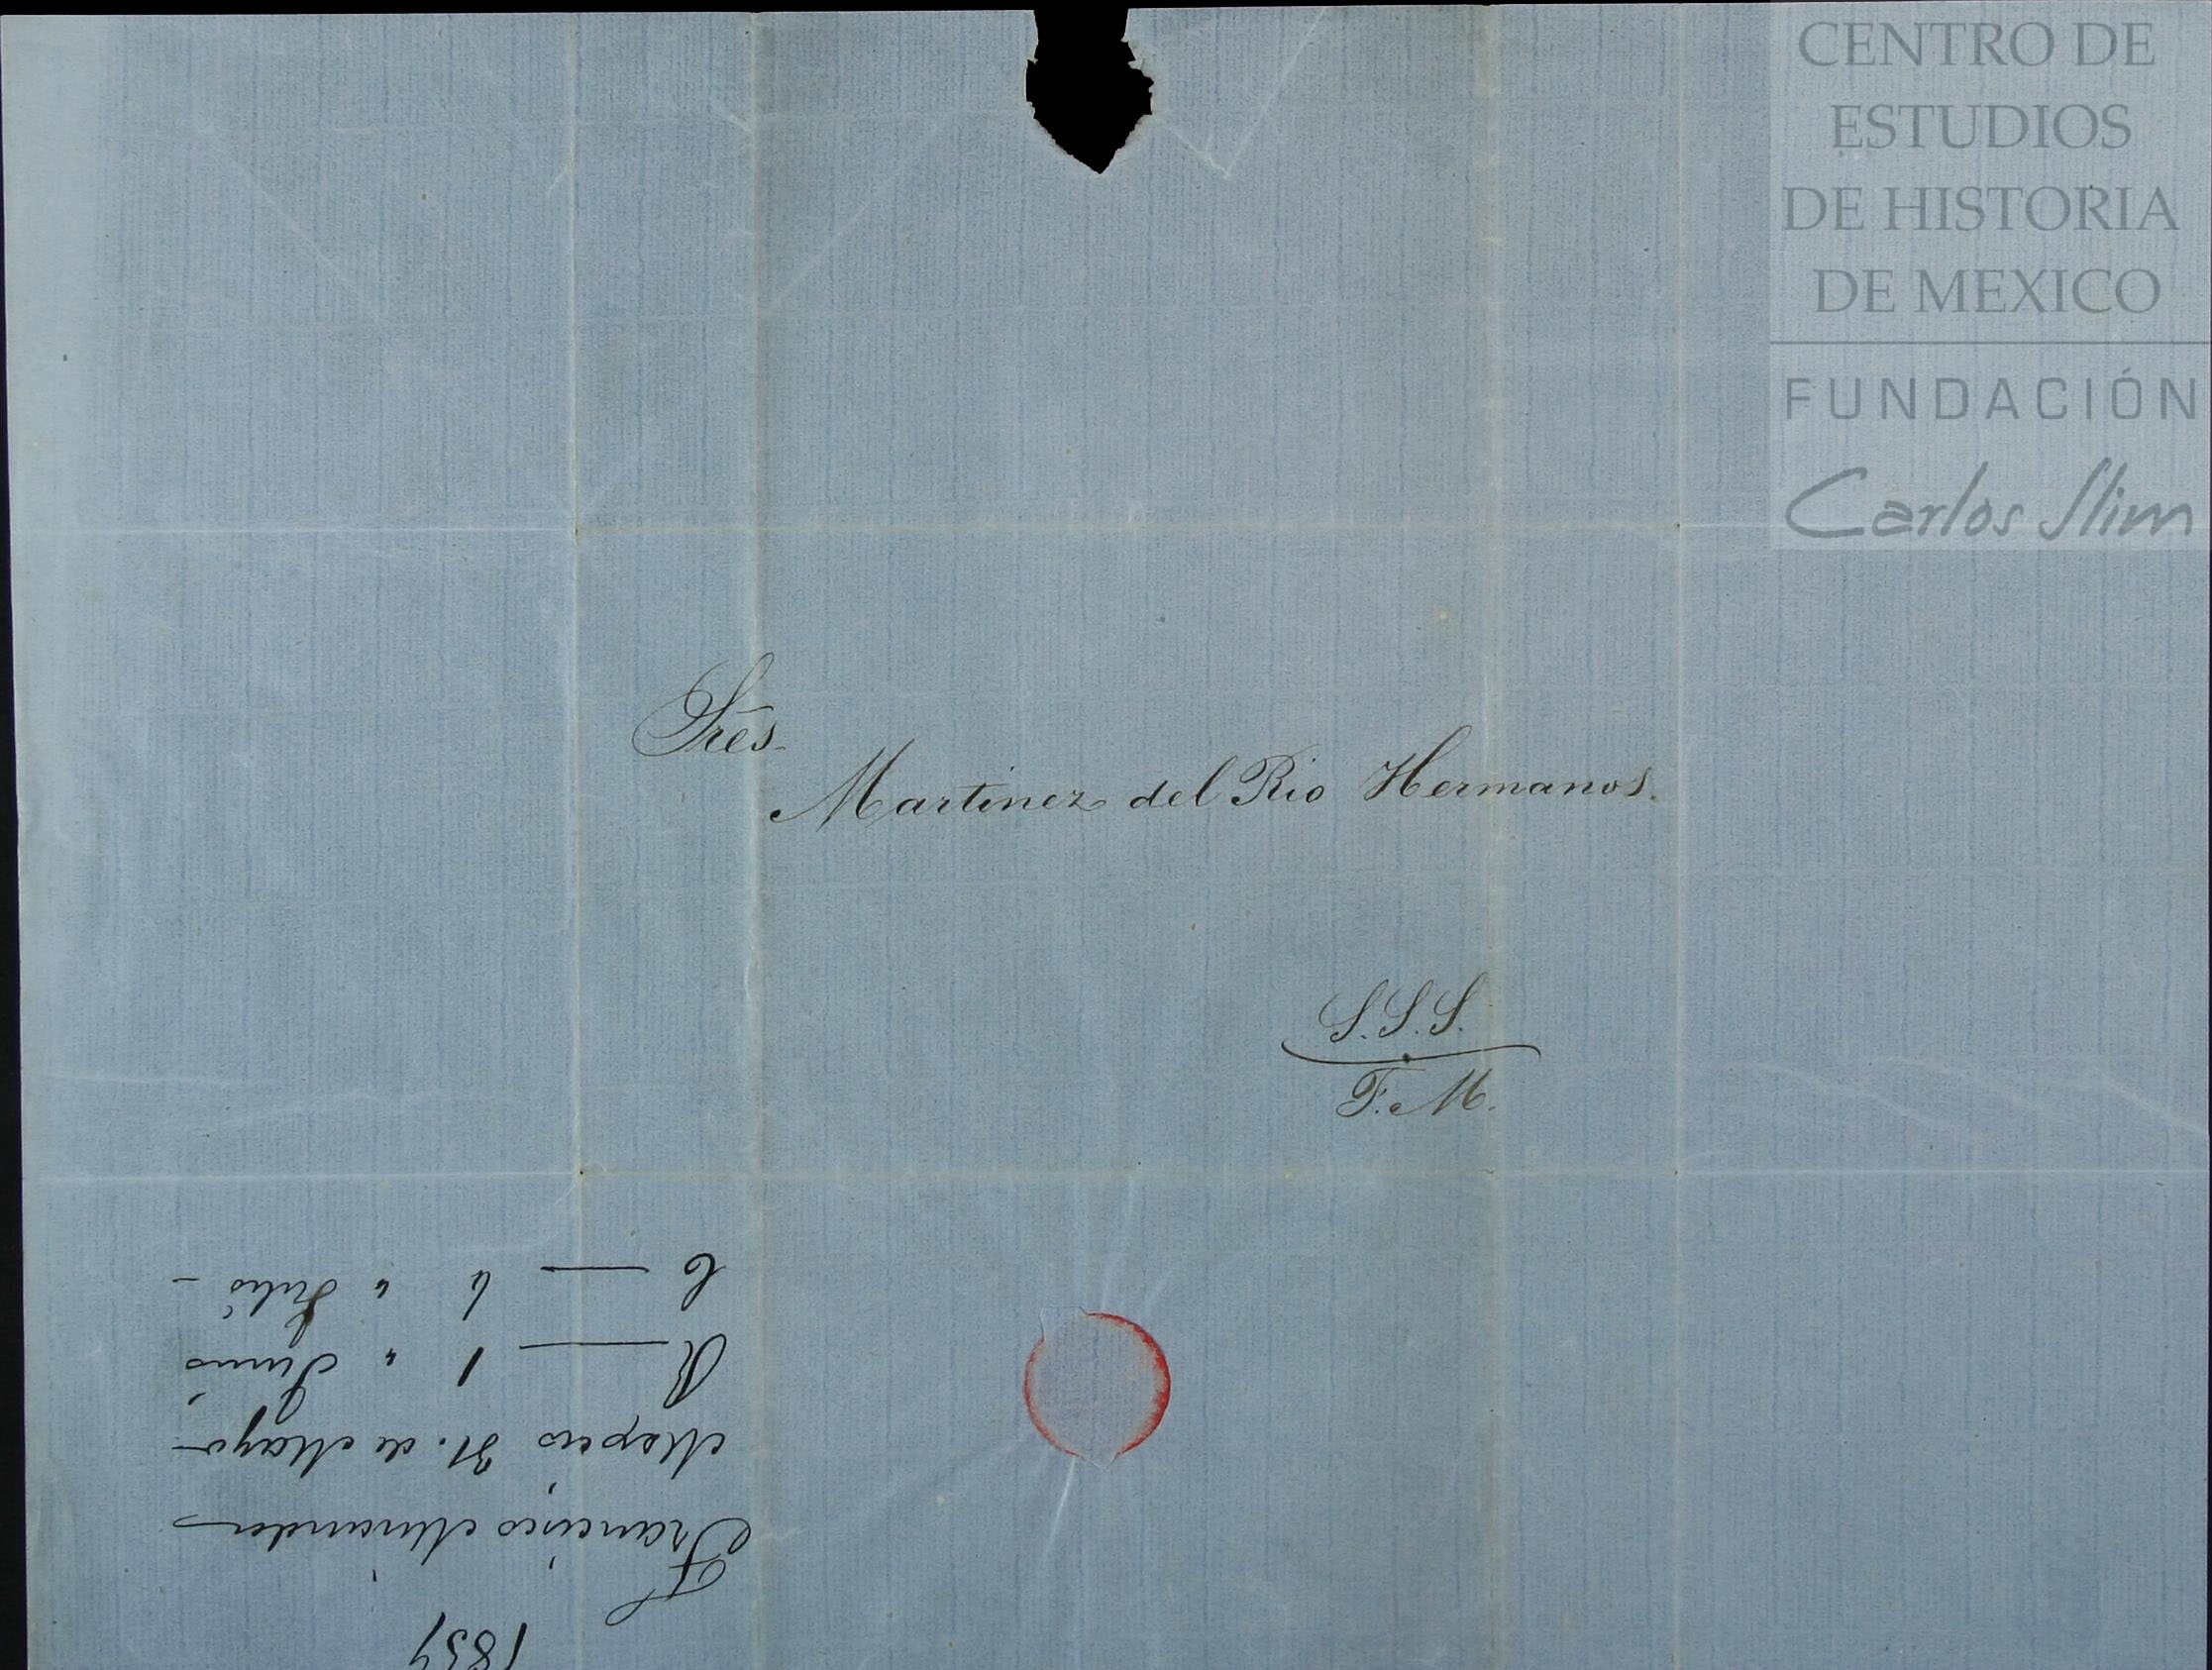 CENTRO DE
ESTUDIOS
DE HISTORIA
DE MEXICO
FUNDACIÓN
Carlos Slim
Sres.
Martinez del Rio Hermanos.
S.S.S.
F. M.
Francisco Miranda
31. de Mayo
R — 1 " Junio
C — 4 " Julio —